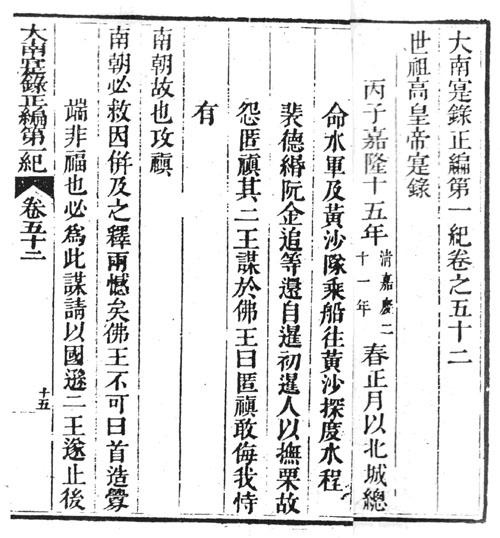 大南寔錄正編第一紀卷之五十二
世祖高皇帝寔錄
丙子嘉隆十五年
清嘉慶二
十一年
春正月以北城總
命水軍及黃沙隊乘船往黃沙探度水程
裴德縉阮金追等還自暹初暹人以撫栗故
怨匿禛其二王謀於佛王曰匿禛敢侮我恃
有
南朝故也攻禛
南朝必救因併及之釋兩憾矣佛王不可曰首造釁
端非福也必為此謀請以國遜二王遂止後
大南寔錄正編第一紀
卷五十二
十五